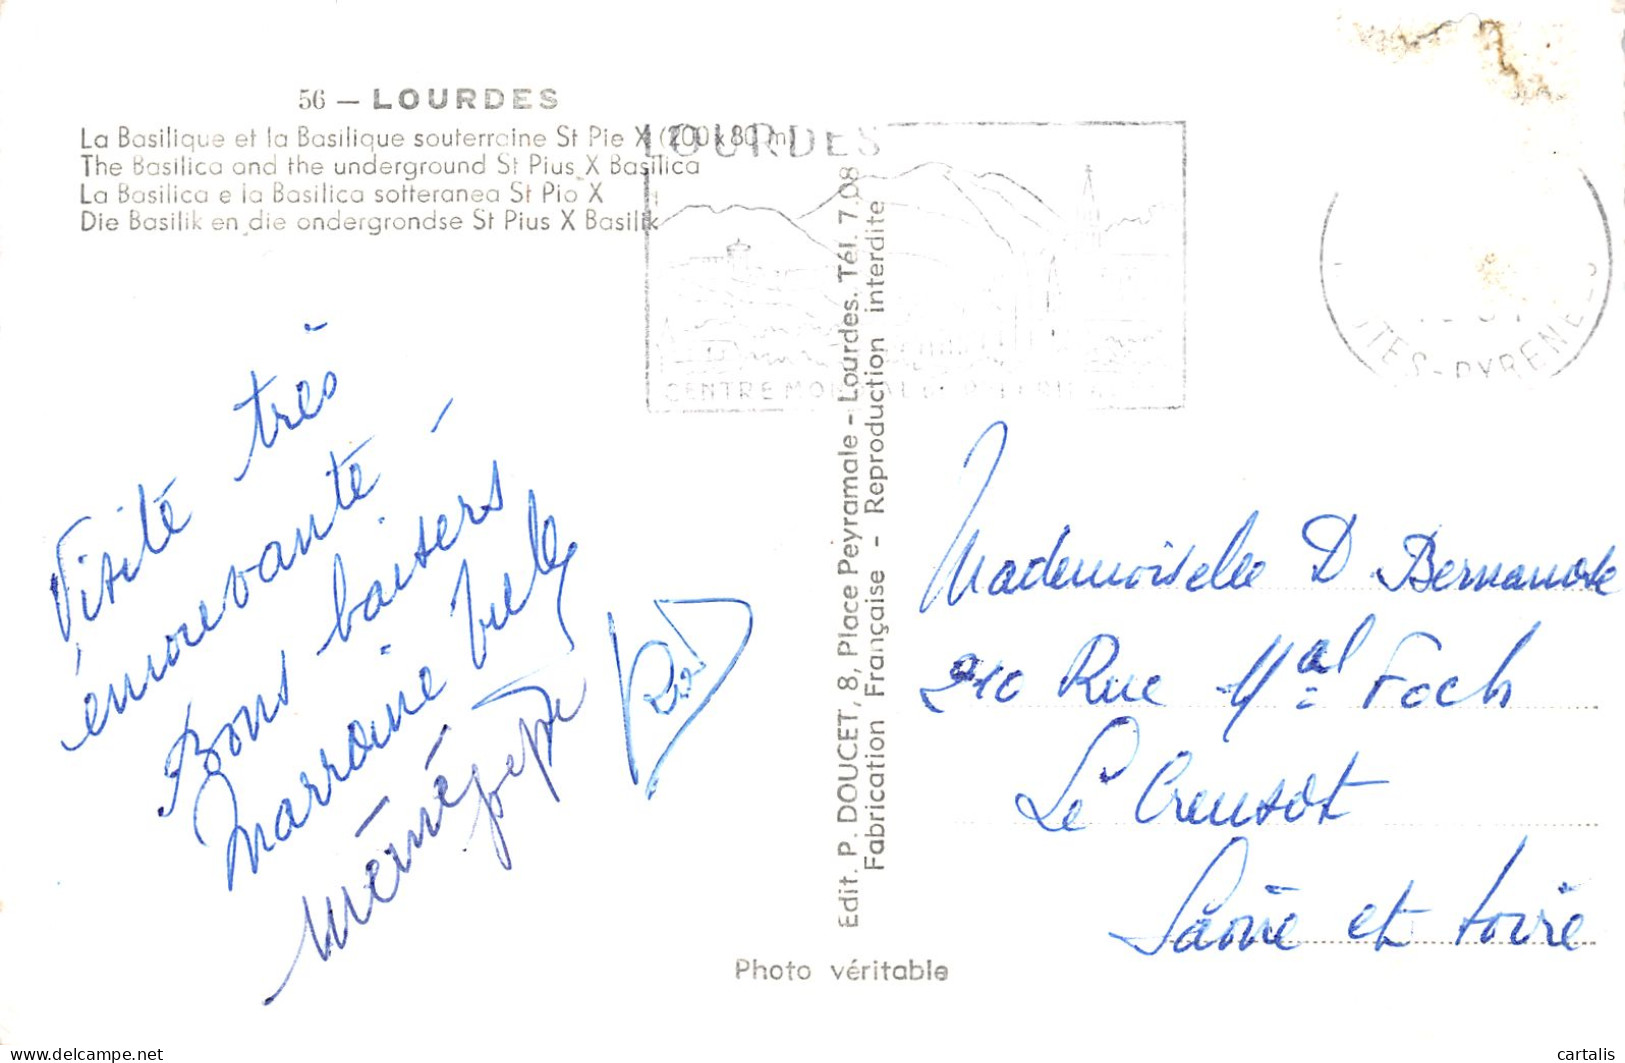 56 — LOURDES
La Basilique et la Basilique souterraine St Pie X (200x80 m)
The Basilica and the underground St Pius X Basilica
La Basilica e la Basilica sotteranea St Pio X
Die Basilik en die ondergrondse St Pius X Basilik
LOURDES
CENTRE
TES-PYRENE
Visite très
émouvante -
Bons baisers
Marraine
mémé pépé
Edit. P. DOUCET, 8, Place Peyramale - Lourdes. Tél. 7.08
Fabrication Française - Reproduction interdite
Mademoiselle D
210 Rue Mal Foch
Le Creusot
Saône et Loire
Photo véritable
cartalis